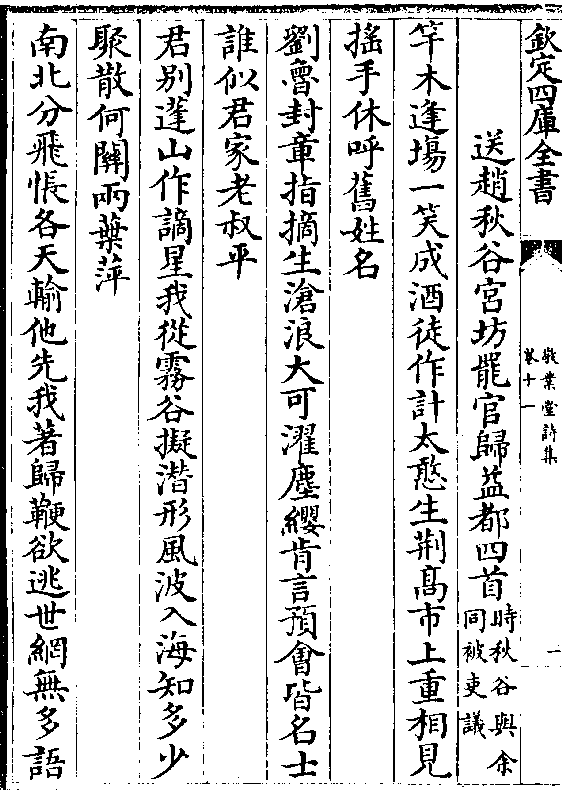 欽定四庫全書
敬業堂詩集
卷十一
一
送趙秋谷宮坊罷官歸益都四首時秋谷與余同被吏議
竿木逢場一笑成酒徒作計太憨生荆髙市上重相見
搖手休呼舊姓名
劉魯封章指摘生滄浪大可濯塵纓肯言預會皆名士
誰似君家老叔平
君别蓬山作謫星我從霧谷擬潛形風波入海知多少
聚散何關兩葉萍
南北分飛悵各天輸他先我著歸鞭欲逃世網無多語